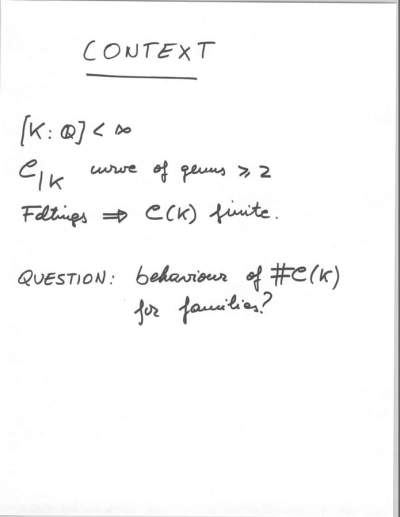 CONTEXT
[K:Q] < ∞
C/K curve of genus ≥ 2
Faltings ⇒ C(K) finite.
QUESTION: behaviour of #C(K)
for families?